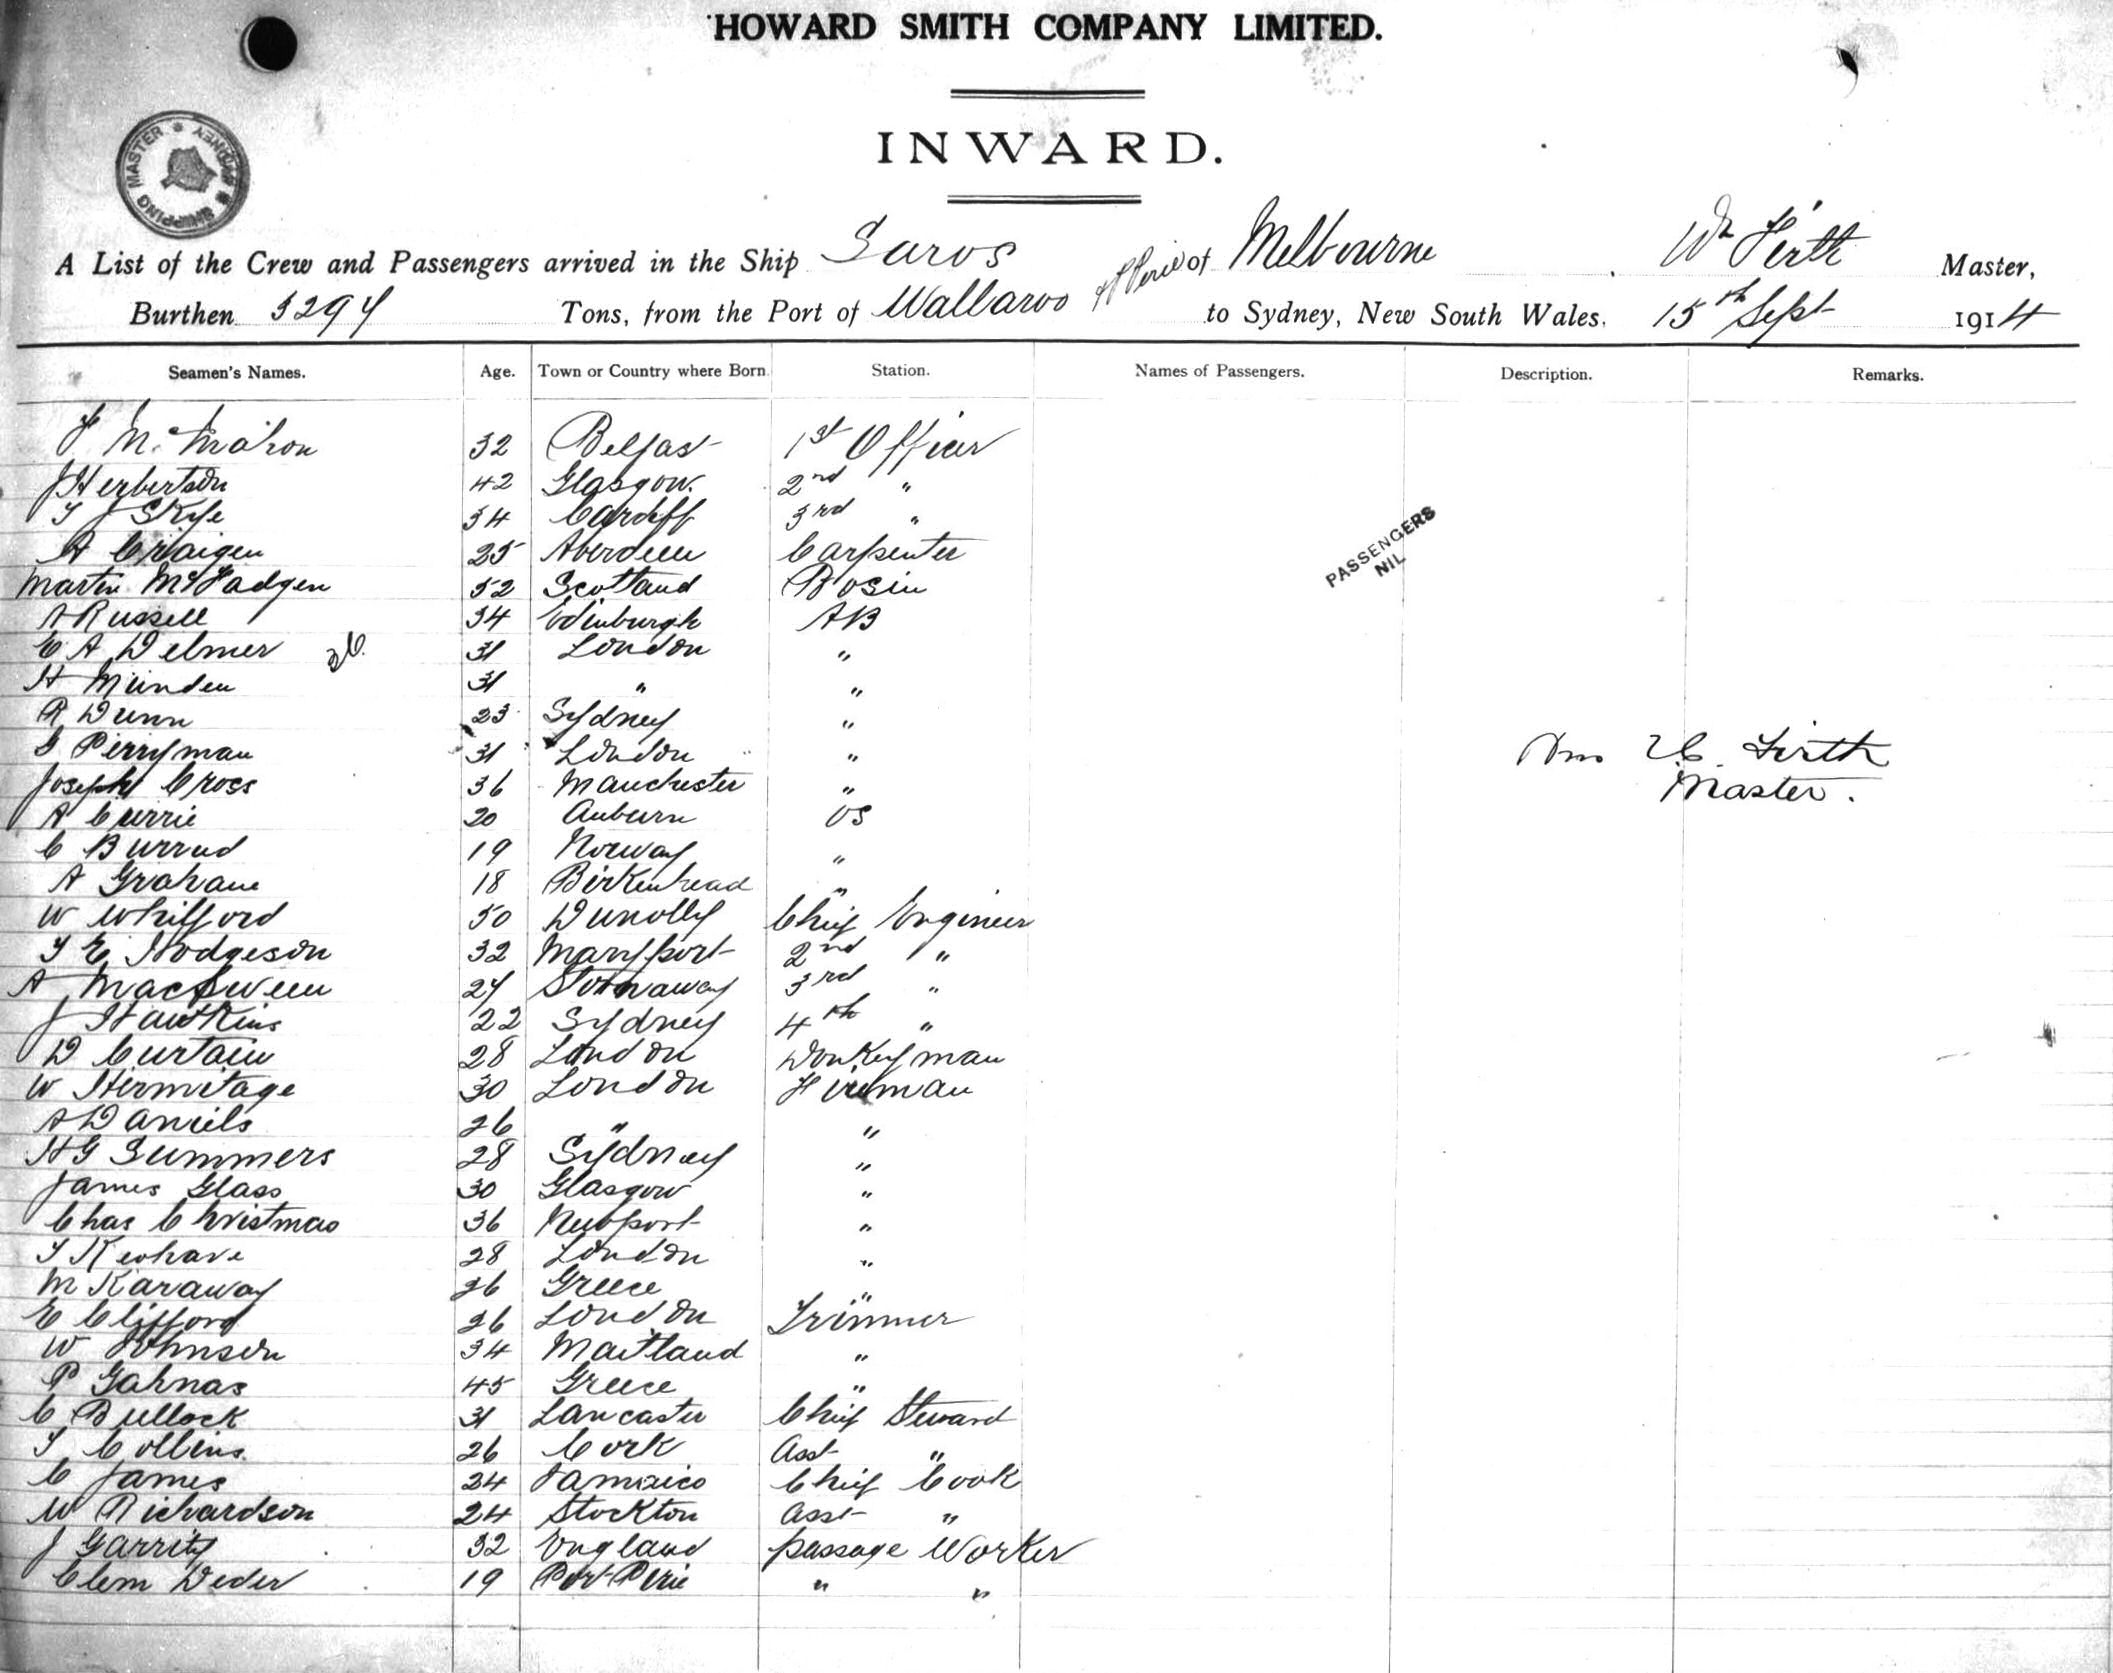 HOWARD SMITH COMPANY LIMITED.
INWARD.
SHIPPING MASTER SYDNEY
A List of the Crew and Passengers arrived in the Ship Saros of Melbourne Wm Firth Master,
Burthen Tons, from the Port of Wallaroo & P Pirie to Sydney, New South Wales. 15th Sept 1914
Seamen's Names. Age. Town or Country where Born. Station. Names of Passengers. Description. Remarks.
McMahon 32 Belfast 1st Officer
J Herbertson 42 Glasgow. 2nd "
T J Skye 34 Cardiff 3rd "
A Craigen 25 Aberdeen Carpenter
Martin McFadgen 52 Scotland Bosin
A Russell 34 Edinburgh AB
E A Delmer 31 London "
H Munden 31 " "
R Dunn 23 Sydney "
G Perryman 31 London "
Joseph Cross 36 Manchester "
A Currie 20 Auburn OS
C Burrud 19 Norway "
A Grahame 18 Birkenhead "
W Whifford 50 Dunolly Chief Engineer
T E Hodgeson 32 Maryport 2nd "
A MacSween 24 Stornaway 3rd "
J Hawkins 22 Sydney 4th "
D Curtain 28 London Donkeyman
W Hermitage 30 London Fireman
A Daniels 26 " "
H G Summers 28 Sydney "
James Glass 30 Glasgow "
Chas Christmas 36 Newport "
T Keohave 28 London "
M Karaway 26 Greece "
E Clifford 26 London Trimmer
W Johnson 34 Maitland "
P Gahnas 45 Greece "
C Bullock 31 Lancaster Chief Steward
T Collins. 26 Cork Asst "
C James 24 Jamaico Chief Cook
W Richardson 24 Stockton Asst "
J Garrity 32 England passage Worker
Clem Deder 19 Port Pirie " "
PASSENGERS
NIL
Wm C. Firth
Master.